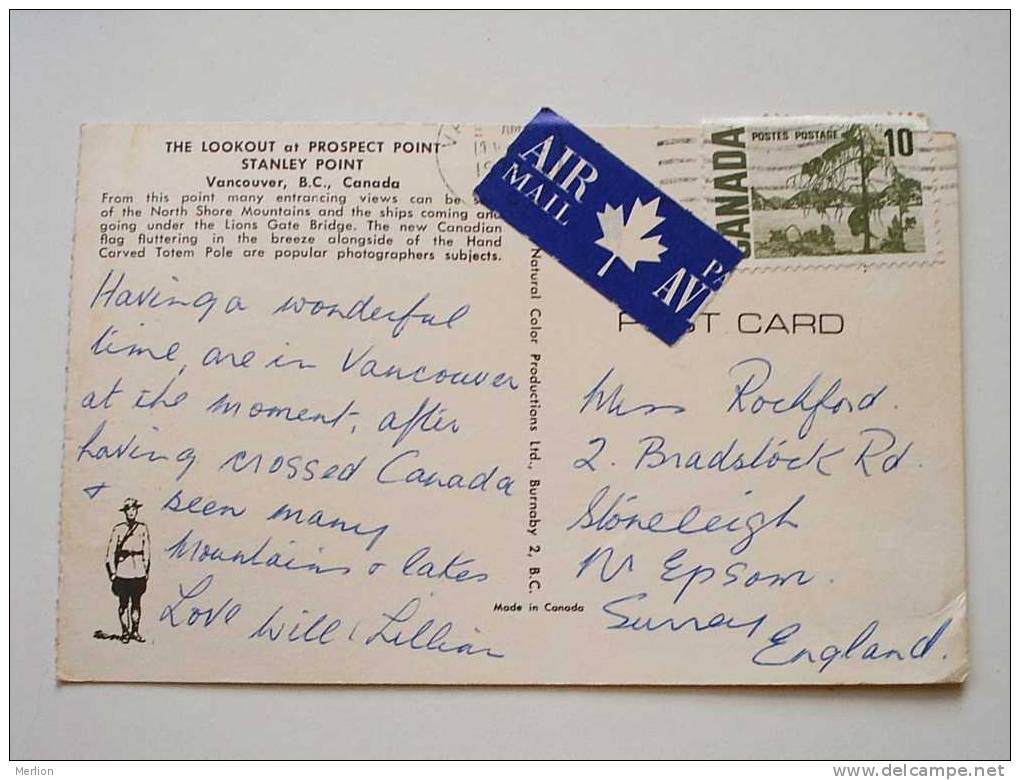 THE LOOKOUT at PROSPECT POINT
STANLEY POINT
Vancouver, B.C., Canada
From this point many entrancing views can be
of the North Shore Mountains and the ships coming and
going under the Lions Gate Bridge. The new Canadian
flag fluttering in the breeze alongside of the Hand
Carved Totem Pole are popular photographers subjects.
Having a wonderful
time, are in Vancouver
at the moment, after
having crossed Canada
& seen many
mountains & lakes
Love Will & Lillian
Natural Color Productions Ltd., Burnaby 2, B.C.
Made in Canada
AIR
MAIL
PA
AVI
CANADA
POSTES POSTAGE
10
POST CARD
Miss Rockford.
2. Bradstock Rd.
Stoneleigh
Nr Epsom.
Surrey
England.
Merlion
www.delcampe.net